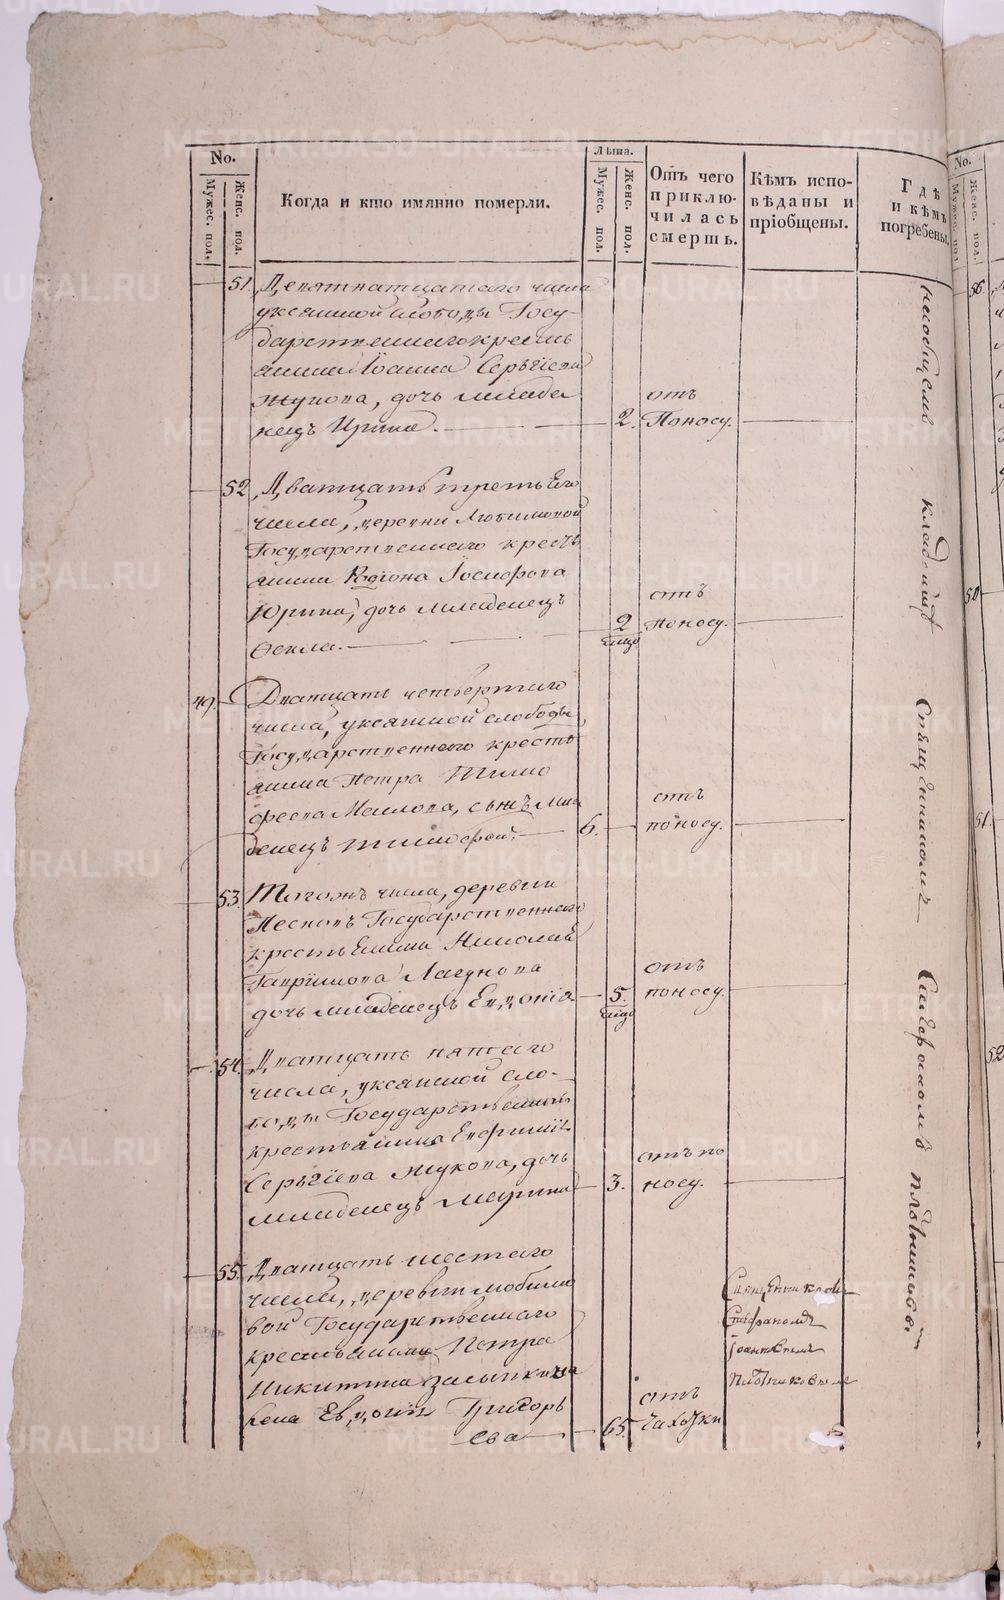 No.
Мужес. пол.
Женс. пол.
Когда и кто имянно померли.
Лѣта.
Мужес. пол.
Женс. пол.
Отъ чего приклю-
чилась смерть.
Кѣмъ испо-
вѣданы и
пріобщены.
Гдѣ
и кѣмъ
погребены.
51. Девятнатцатого числа
уксянской слободы Госу-
дарственнаго кресть
янина Іоанна Сергѣева
Жукова, дочь младе
нецъ Ирина. 2. отъ
Поносу.
52 Дватцать третьего
числа, деревни Любимовой
Государственнаго кресть
янина Родіона Іосифова
Юрина, дочь младенецъ
Ѳекла. 2 отъ
поносу.
49. Дватцать четвертаго
числа, уксянской слободы
Государственнаго кресть
янина Петра Тимо
феева сынъ мла
денецъ Тимофей. 6. отъ
поносу.
53. Тогожъ числа, деревни
Песковъ Государственнаго
крестьянина Николая
Гаврилова Лагунова
дочь младенецъ Евдокія 5. отъ
поносу.
54. Дватцать пятаго
числа, уксянской сло-
боды Государственнаго
крестьянина
Сергѣева Жукова, дочь
младенецъ Марина 3. отъ по
носу.
55. Дватцать шестаго
числа, деревни любимо
вой Государственнаго
крестьянина Петра
Никитина
жена Евдокия Григорь
ева 65. отъ
чахотки
Священником
Стефаномъ
Іоанновымъ
Плотниковымъ
на общемъ кладбищѣ Священникомъ Стефаномъ Плотниковымъ
No.
Мужес. пол.
Женс. пол.
56.
50
51.
52
METRIKI.GASO-URAL.RU